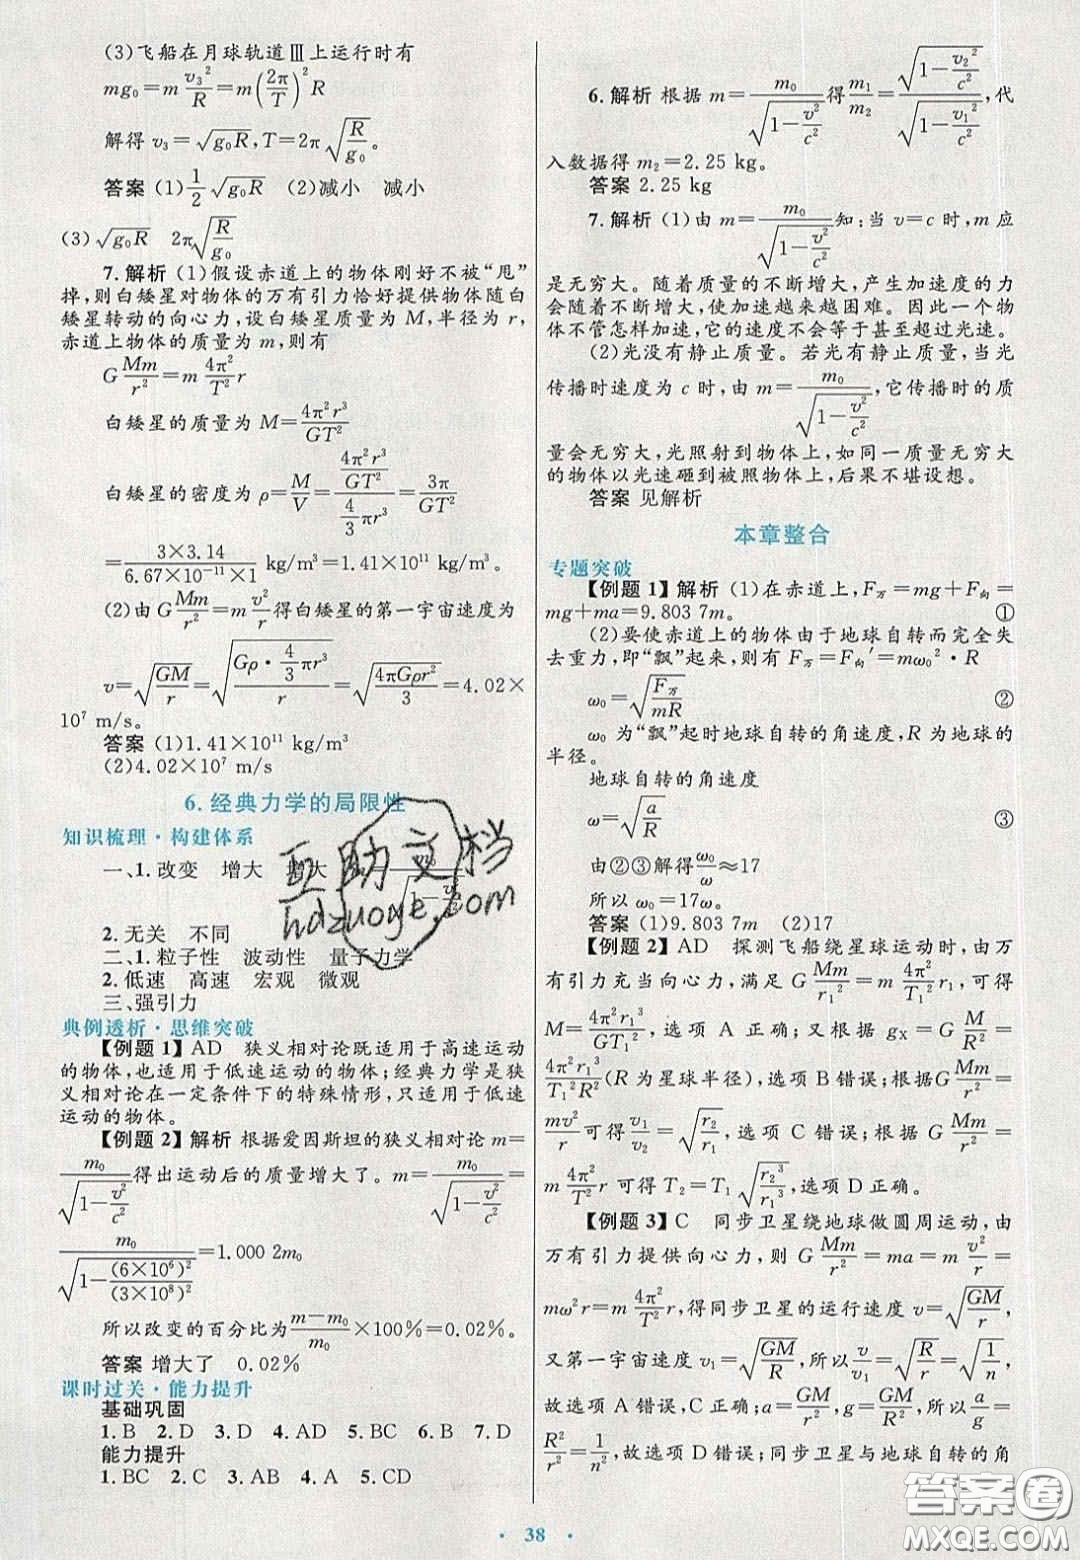 (3)飞船在月球轨道Ⅲ上运行时有
mg₀=m v₃²/R=m(2π/T)²R
解得 v₃=√(g₀R),T=2π√(R/g₀)。
答案 (1) 1/2 √(g₀R) (2)减小 减小
(3)√(g₀R) 2π√(R/g₀)
7.解析 (1)假设赤道上的物体刚好不被“甩”
掉,则白矮星对物体的万有引力恰好提供物体随白
矮星转动的向心力,设白矮星质量为 M,半径为 r,
赤道上物体的质量为 m,则有
G Mm/r²=m 4π²/T² r
白矮星的质量为 M=4π²r³/GT²
白矮星的密度为 ρ=M/V=(4π²r³/GT²)/(4/3 πr³)=3π/GT²
=3×3.14/(6.67×10⁻¹¹×1) kg/m³=1.41×10¹¹ kg/m³
(2)由 G Mm/r²=m v²/r 得白矮星的第一宇宙速度为
v=√(GM/r)=√(Gρ·4/3 πr³/r)=√(4πGρr²/3)=4.02×
10⁷ m/s。
答案 (1)1.41×10¹¹ kg/m³
(2)4.02×10⁷ m/s
6.经典力学的局限性
知识梳理·构建体系
一、1.改变 增大 增大 m₀/√(1-v²/c²)
2.无关 不同
二、1.粒子性 波动性 量子力学
2.低速 高速 宏观 微观
三、强引力
典例透析·思维突破
【例题 1】AD 狭义相对论既适用于高速运动
的物体,也适用于低速运动的物体;经典力学是狭
义相对论在一定条件下的特殊情形,只适用于低速
运动的物体。
【例题 2】解析 根据爱因斯坦的狭义相对论 m=
m₀/√(1-v²/c²) 得出运动后的质量增大了。m=m₀/√(1-v²/c²)=
m₀/√(1-(6×10⁶)²/(3×10⁸)²)=1.000 2m₀
所以改变的百分比为 (m-m₀)/m₀×100%=0.02%。
答案 增大了 0.02%
课时过关·能力提升
基础巩固
1.B 2.D 3.D 4.AD 5.BC 6.B 7.D
能力提升
1.BC 2.C 3.AB 4.A 5.CD
6.解析 根据 m=m₀/√(1-v²/c²) 得 m₁/m₂=√(1-v₂²/c²)/√(1-v₁²/c²),代
入数据得 m₂=2.25 kg。
答案 2.25 kg
7.解析 (1)由 m=m₀/√(1-v²/c²) 知:当 v=c 时,m 应
是无穷大。随着质量的不断增大,产生加速度的力
会随着不断增大,使加速越来越困难。因此一个物
体不管怎样加速,它的速度不会等于甚至超过光速。
(2)光没有静止质量。若光有静止质量,当光
传播时速度为 c 时,由 m=m₀/√(1-v²/c²),它传播时的质
量会无穷大,光照射到物体上,如同一质量无穷大
的物体以光速砸到被照物体上,后果不堪设想。
答案 见解析
本章整合
专题突破
【例题 1】解析 (1)在赤道上,F万=mg+F向=
mg+ma=9.803 7m。 ①
(2)要使赤道上的物体由于地球自转而完全失
去重力,即“飘”起来,则有 F万=F向′=mω₀²·R
ω₀=√(F万/mR) ②
ω₀ 为“飘”起时地球自转的角速度,R 为地球的
半径。
地球自转的角速度
ω=√(a/R) ③
由②③解得 ω₀/ω≈17
所以 ω₀=17ω。
答案 (1)9.803 7m (2)17
【例题 2】AD 探测飞船绕星球运动时,由万
有引力充当向心力,满足 G Mm/r₁²=m 4π²/T₁² r₁,可得
M=4π²r₁³/GT₁²,选项 A 正确;又根据 gx=G M/R²=
4π²r₁³/T₁²R²(R 为星球半径),选项 B 错误;根据 G Mm/r²=
mv²/r 可得 v₁/v₂=√(r₂/r₁),选项 C 错误;根据 G Mm/r²=
m 4π²/T² r 可得 T₂=T₁√(r₂³/r₁³),选项 D 正确。
【例题 3】C 同步卫星绕地球做圆周运动,由
万有引力提供向心力,则 G Mm/r²=ma=m v²/r=
mω²r=m 4π²/T² r,得同步卫星的运行速度 v=√(GM/r),
又第一宇宙速度 v₁=√(GM/R),所以 v/v₁=√(R/r)=√(1/n),
故选项 A 错误,C 正确;a=GM/r²,g=GM/R²,所以 a/g=
R²/r²=1/n²,故选项 D 错误;同步卫星与地球自转的角
38
互助文档
hdzuoye.com
答案圈
MXQE.COM